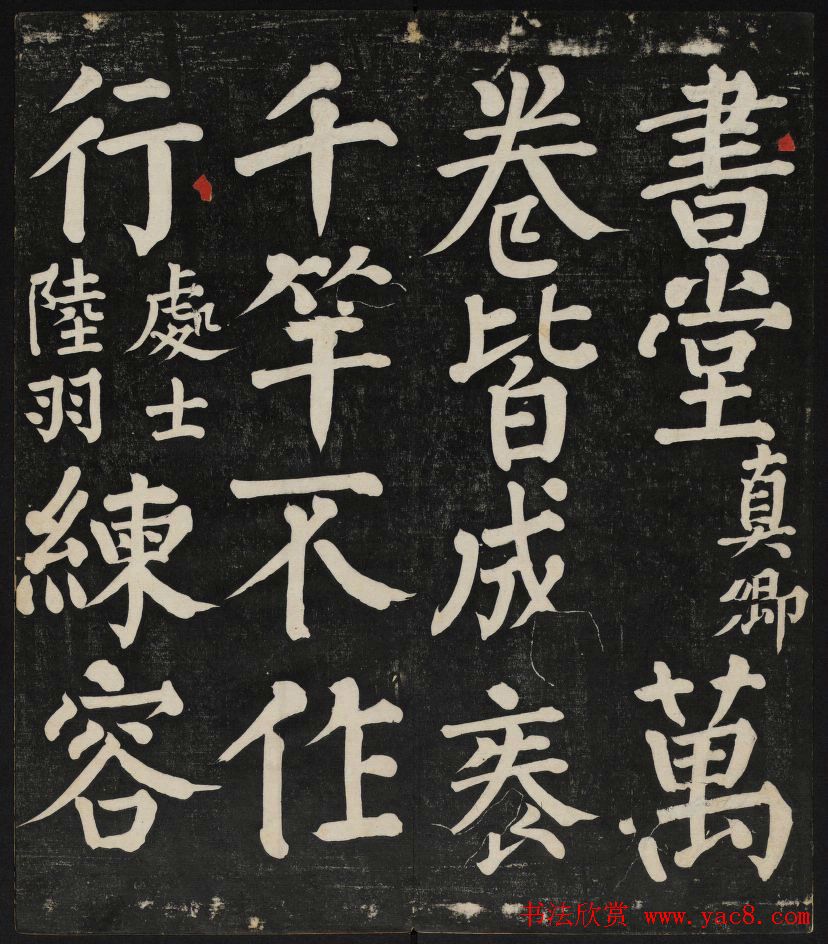 書堂真卿萬
卷皆成袠
千竿不作
行處士陸羽練容
书法欣赏 www.yac8.com